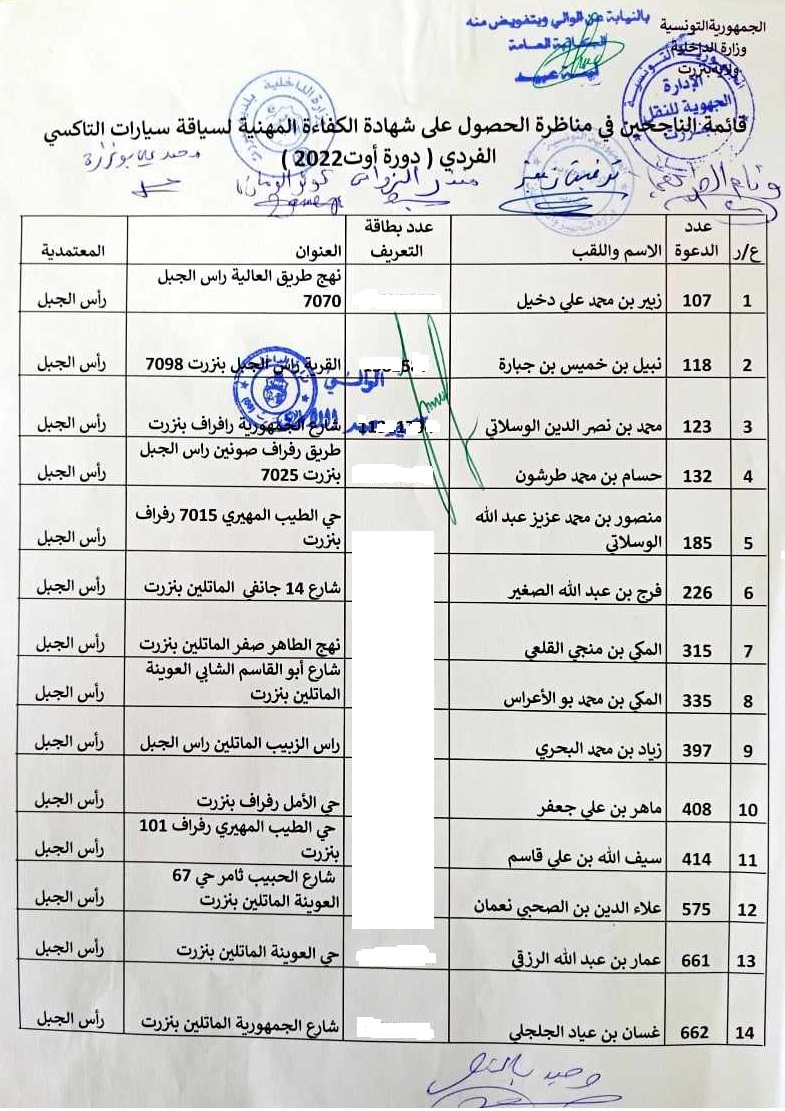 الجمهورية التونسية
وزارة الداخلية
ولاية بنزرت
بالنيابة عن الوالي وبتفويض منه
الكاتبة العامة
الإدارة
الجهوية للنقل
بنزرت
قائمة الناجحين في مناظرة الحصول على شهادة الكفاءة المهنية لسياقة سيارات التاكسي
الفردي ( دورة أوت2022 )
ع/ر عدد الدعوة الاسم واللقب عدد بطاقة التعريف العنوان المعتمدية
1 107 زبير بن محمد علي دخيل نهج طريق العالية راس الجبل 7070 رأس الجبل
2 118 نبيل بن خميس بن جبارة القرية راس الجبل بنزرت 7098 رأس الجبل
الوالي
3 123 محمد بن نصر الدين الوسلاتي شارع الجمهورية رافراف بنزرت رأس الجبل
4 132 حسام بن محمد طرشون طريق رفراف صونين راس الجبل بنزرت 7025 رأس الجبل
5 185 منصور بن محمد عزيز عبد الله الوسلاتي حي الطيب المهيري 7015 رفراف بنزرت رأس الجبل
6 226 فرج بن عبد الله الصغير شارع 14 جانفي الماتلين بنزرت رأس الجبل
7 315 المكي بن منجي القلعي نهج الطاهر صفر الماتلين بنزرت رأس الجبل
8 335 المكي بن محمد بو الأعراس شارع أبو القاسم الشابي العوينة الماتلين بنزرت رأس الجبل
9 397 زياد بن محمد البحري راس الزبيب الماتلين راس الجبل رأس الجبل
10 408 ماهر بن علي جعفر حي الأمل رفراف بنزرت رأس الجبل
11 414 سيف الله بن علي قاسم حي الطيب المهيري رفراف 101 بنزرت رأس الجبل
12 575 علاء الدين بن الصحبي نعمان شارع الحبيب ثامر حي 67 العوينة الماتلين بنزرت رأس الجبل
13 661 عمار بن عبد الله الرزقي حي العوينة الماتلين بنزرت رأس الجبل
14 662 غسان بن عياد الجلجلي شارع الجمهورية الماتلين بنزرت رأس الجبل